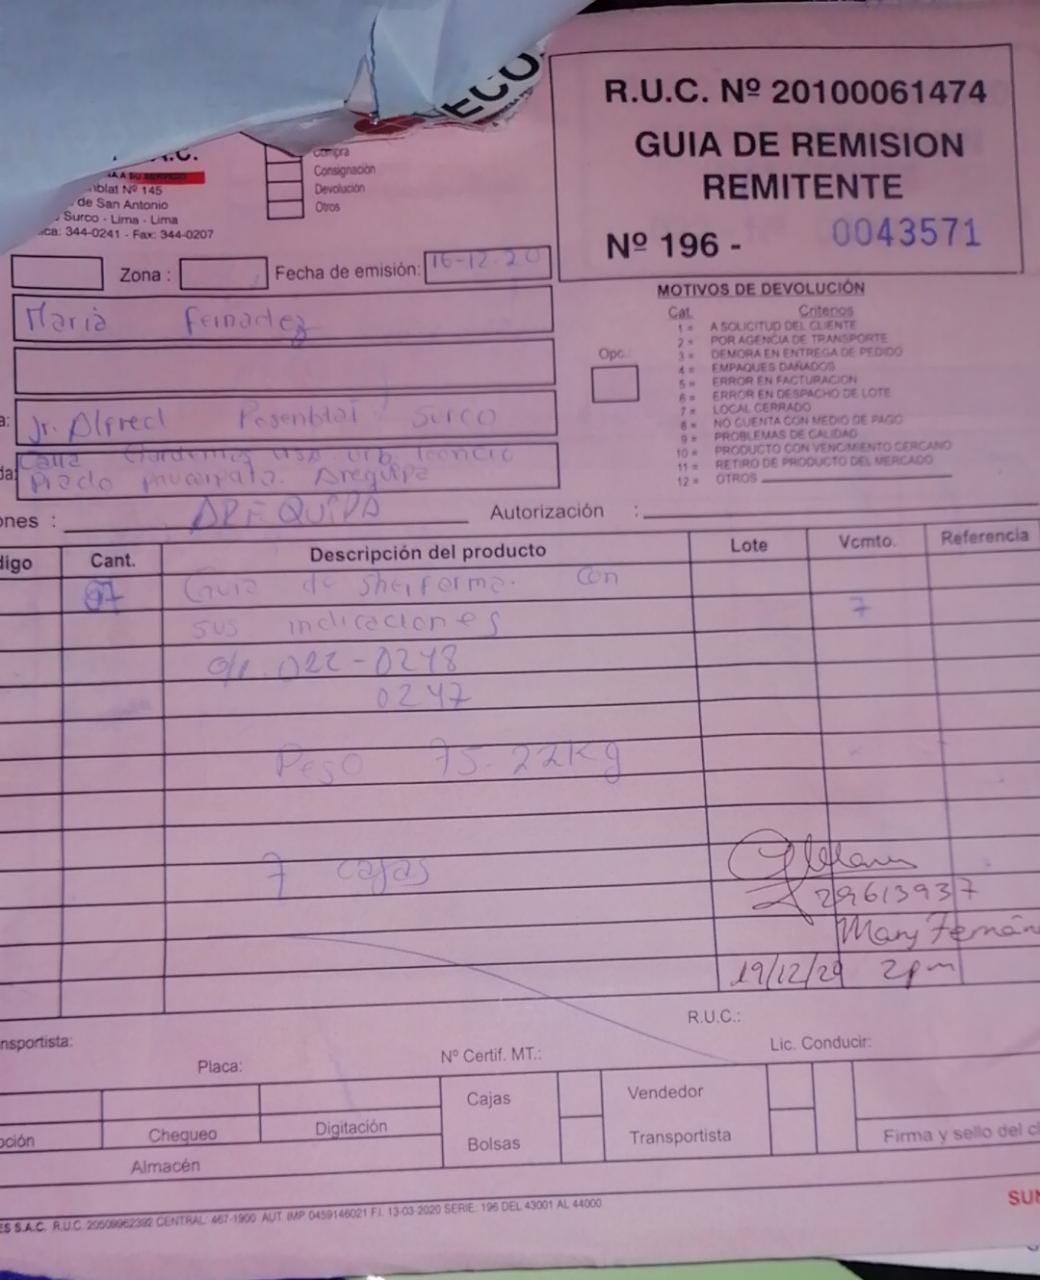 ECO
R.U.C. Nº 20100061474
GUIA DE REMISION
REMITENTE
Nº 196 - 0043571
A.C.
A A SU SERVICIO
nblat Nº 145
de San Antonio
Surco - Lima - Lima
ca: 344-0241 - Fax: 344-0207
Compra
Consignación
Devolución
Otros
Zona :
Fecha de emisión: 16-12-20
Maria Fernadez
Jr. Alfred Rosenblat Surco
a:
Calle
Urb. Leoncio
da:
Prado Paucarpata. Arequipa
ones : AREQUIPA
Autorización :
MOTIVOS DE DEVOLUCIÓN
Cat. Criterios
Opc.:
1 = A SOLICITUD DEL CLIENTE
2 = POR AGENCIA DE TRANSPORTE
3 = DEMORA EN ENTREGA DE PEDIDO
4 = EMPAQUES DAÑADOS
5 = ERROR EN FACTURACION
6 = ERROR EN DESPACHO DE LOTE
7 = LOCAL CERRADO
8 = NO CUENTA CON MEDIO DE PAGO
9 = PROBLEMAS DE CALIDAD
10 = PRODUCTO CON VENCIMIENTO CERCANO
11 = RETIRO DE PRODUCTO DEL MERCADO
12 = OTROS
digo Cant. Descripción del producto Lote Vcmto. Referencia
07 Guia de Sherforma. con
sus indicaciones 7
022-0248
0247
Peso 75.22Kg
7 cajas
29613937
Mary Fernán
19/12/20 2pm
R.U.C.:
nsportista:
Placa:
Nº Certif. MT.:
Lic. Conducir:
Cajas
Vendedor
pción Chequeo Digitación
Bolsas
Transportista
Firma y sello del cl
Almacén
ES S.A.C. R.U.C. 20509962392 CENTRAL: 467-1900 AUT. IMP 0459146021 F.I. 13-03-2020 SERIE: 196 DEL 43001 AL 44000
SUN